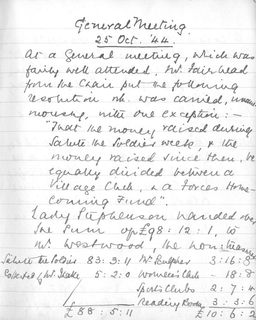 General Meeting.
25 Oct. '44.
At a General meeting, which was
fairly well attended, Mr. Fairhead
from the Chair put the following
resolution wh. was carried, unani-
mously, with one exception :-
"That the money raised during
Salute the Soldier week, & the
money raised since then, be
equally divided between a
Village Club, & a Forces Home-
coming Fund".
Lady Stephenson handed over
the sum of £98 : 12 : 1, to
Mr. Westwood, the Hon: Treasurer
Salute the Soldier 83 : 3 : 11 Mr. 3 : 16 : 8
Collected by Mr. 5 : 2 : 0 Women's Club - 18 : 8
Sports Clubs 2 : 7 : 4
Reading Room 3 : 3 : 6
£88 : 5 : 11 £10 : 6 : 2